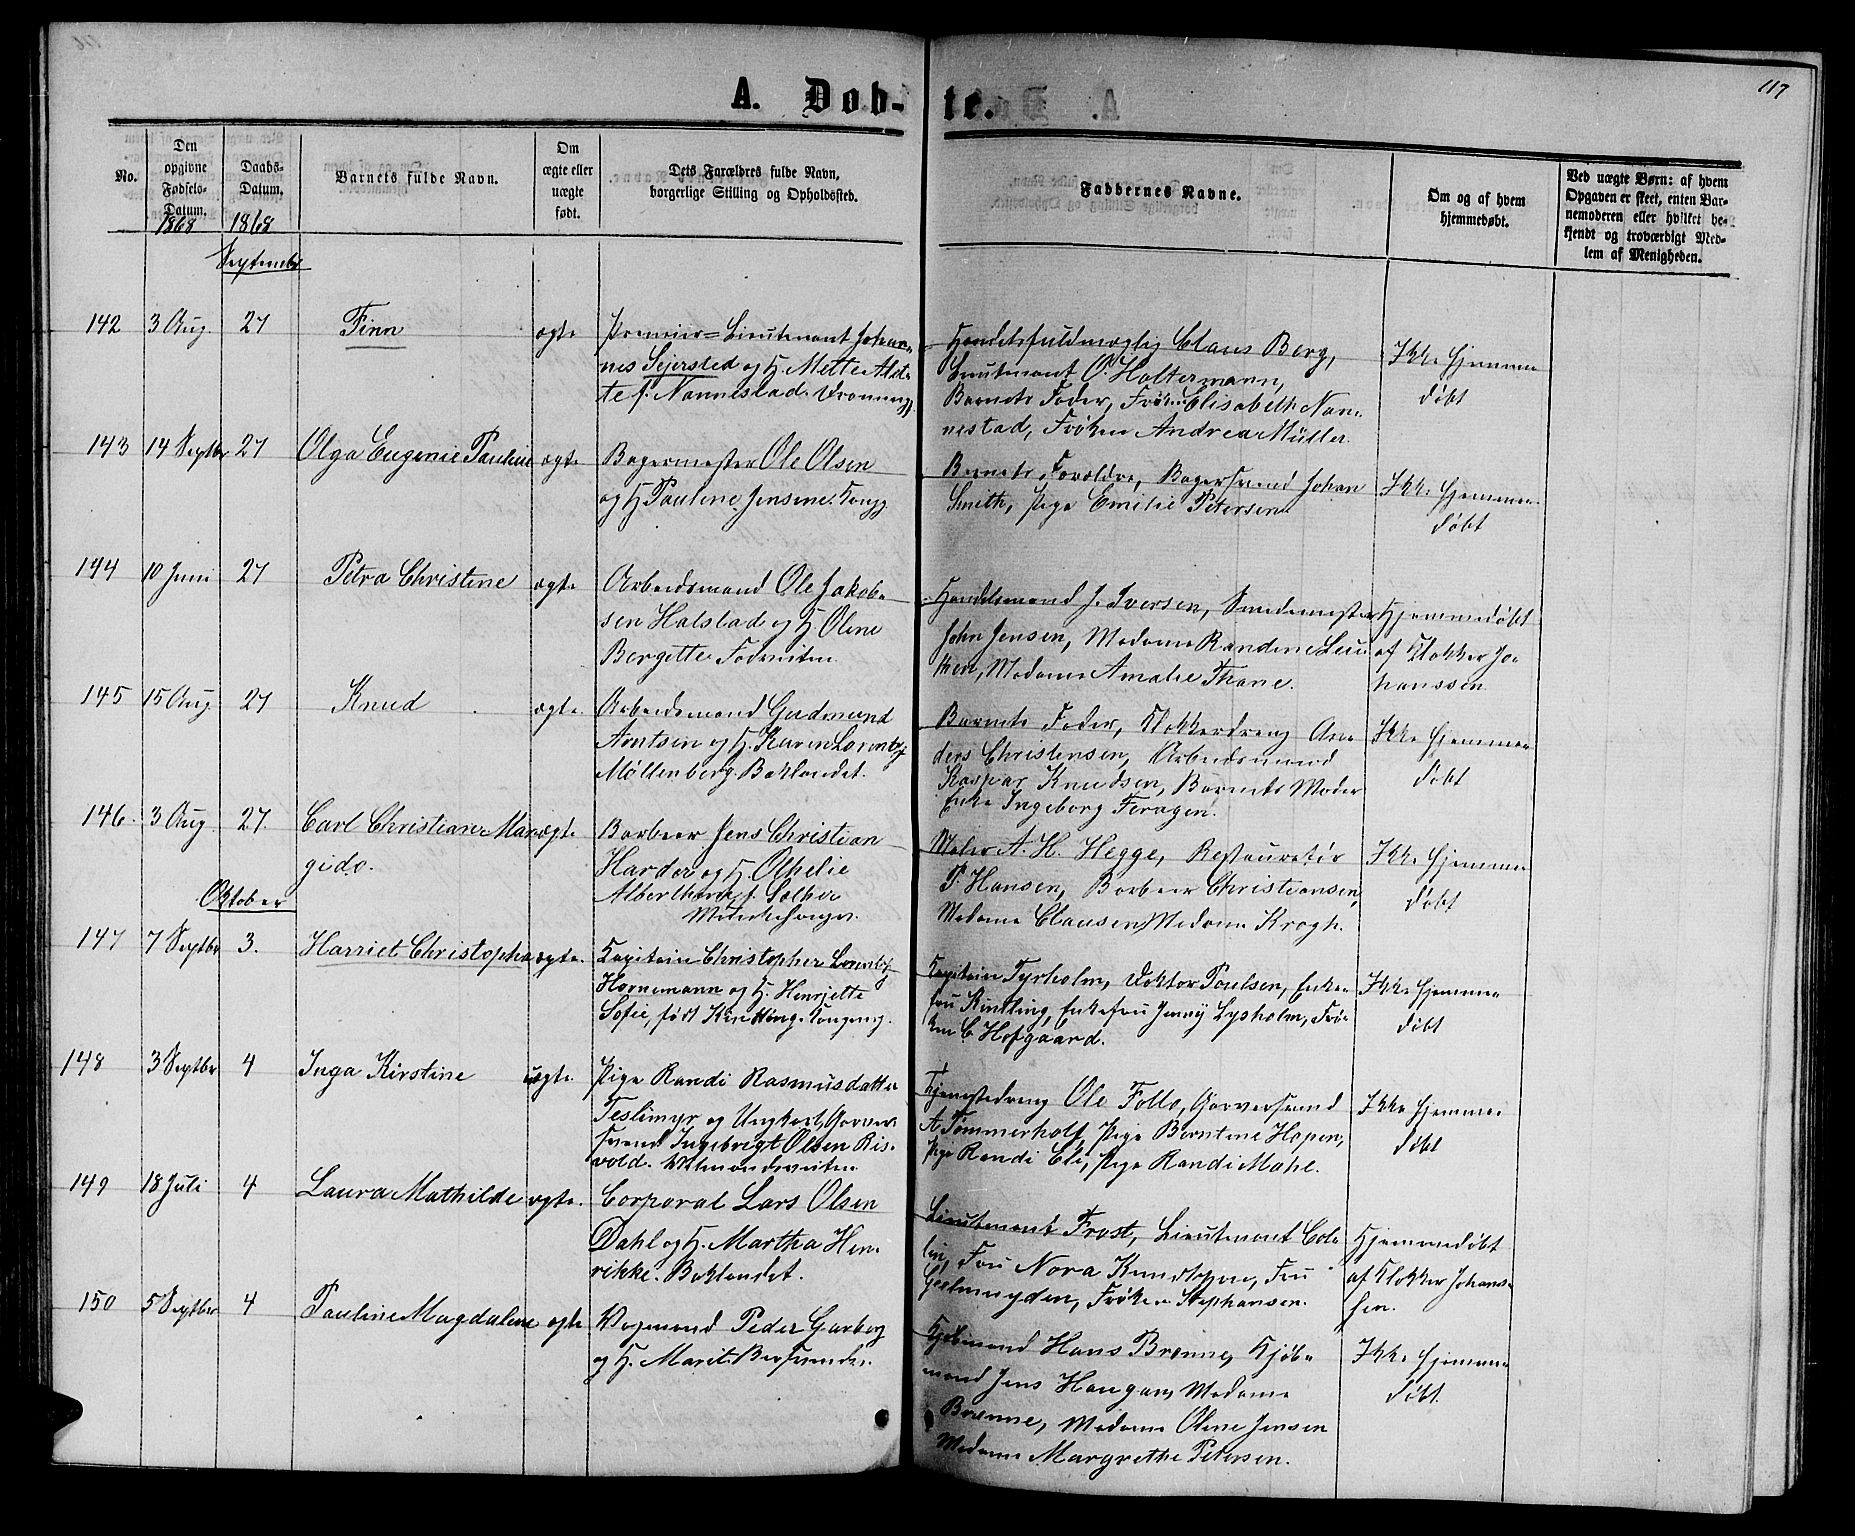 117
A. Døb-
te.
No.
Den
opgivne
Fødsels-
Datum.
1868
Daabs-
Datum.
1868
Barnets fulde Navn.
Om
ægte eller
uægte
født.
Dets Forældres fulde Navn,
borgerlige Stilling og Opholdssted.
Faddernes Navne.
Om og af hvem
hjemmedøbt.
Ved uægte Børn: af hvem
Opgaven er skeet, enten Bar-
nemoderen eller hvilket be-
kjendt og troværdigt Med-
lem af Menigheden.
September
142 3 Aug. 27 Finn ægte
Premier-Lieutenant Johan-
nes Sejersted og H. Mette Alet-
te f. Nannestad. Dronningg.
Handelsfuldmægtig Claus Berg,
Lieutenant O. Holtermann,
Barnets Fader, Frøken Elisabeth Nan-
nestad, Frøken Andrea Müller.
Ikke hjemme
døbt
143 14 Septbr 27 Olga Eugenie Pauline ægte
Bagermester Ole Olsen
og H. Pauline Jensine. Kongg.
Barnets Forældre, Bagersvend Johan
Smith, Pige Emilie Petersen.
Ikke hjemme-
døbt
144 10 Juni 27 Petra Christine ægte
Arbeidsmand Ole Jakob-
sen Halstad og H. Oline
Bergette. Fodveiten.
Handelsmand J. Iversen, Smedemester
John Jensen, Madame Randine Leu
ken, Madame Amalie Thane.
Hjemmedøbt
af Klokker Jo-
hanssen.
145 15 Aug 27 Knud ægte
Arbeidsmand Gudmund
Arntsen og H. Karen Lorentz
Møllenberg. Baklandet.
Barnets Fader, Klokkerdreng An-
ders Christensen, Arbeidsmand
Kaspar Knudsen, Barnets Moder
Enke Ingeborg Feragen.
Ikke hjemme-
døbt
146. 3 Aug. 27. Carl Christian Mar ægte
gido.
Barbeer Jens Christian
Harder og H. Othelie
Alberthine f. Solber
Maler A. H. Hegge, Restauratør
P. Hansen, Barbeer Christiansen,
Madame Clausen, Madame Krogh.
Ikke hjemme
døbt
Oktober
147 7 Septbr 3. Harriet Christopha ægte.
Kapitain Christopher Lorentz
Hornemann og H. Henriette
Sofie, født Kindting. Kongensg.
Kapitain Tyrholm, Doktor Poulsen, Enke-
fru Kintling, Enkefru Jenny Lysholm, Frø-
ken C Hofgaard.
Ikke hjemme
døbt
148 3 Septbr 4 Inga Kirstine uægte.
Pige Randi Rasmusdatter
Teslimyr og Ungkarl, Garver
svend Ingebrigt Olsen Ris-
vold.
Tjenestedreng Ole Follo, Garversvend
A Tømmerholt, Pige Berntine Hopen,
Pige Randi Eli, Pige Randi Mahl.
Ikke hjemme-
døbt
149 18 Juli 4 Laura Mathilde ægte.
Corporal Lars Olsen
Dahl og H. Martha Hen-
rikke. Baklandet.
Lieutenant Frost, Lieutenant Col-
lin, Fru Nora Knudtzon, Fru
Geelmuyden, Frøken Stephansen.
Hjemmedøbt
af Klokker Johans-
sen.
150 5 Septbr 4 Pauline Magdalene ægte
Vognmand Peder Garberg
og H. Marit.
Kjøbmand Hans Brønne, Kjøb-
mand Jens Haugan, Madame
Brønne, Madame Oline Jensen
Madame Margrethe Petersen.
Ikke hjemme-
døbt.